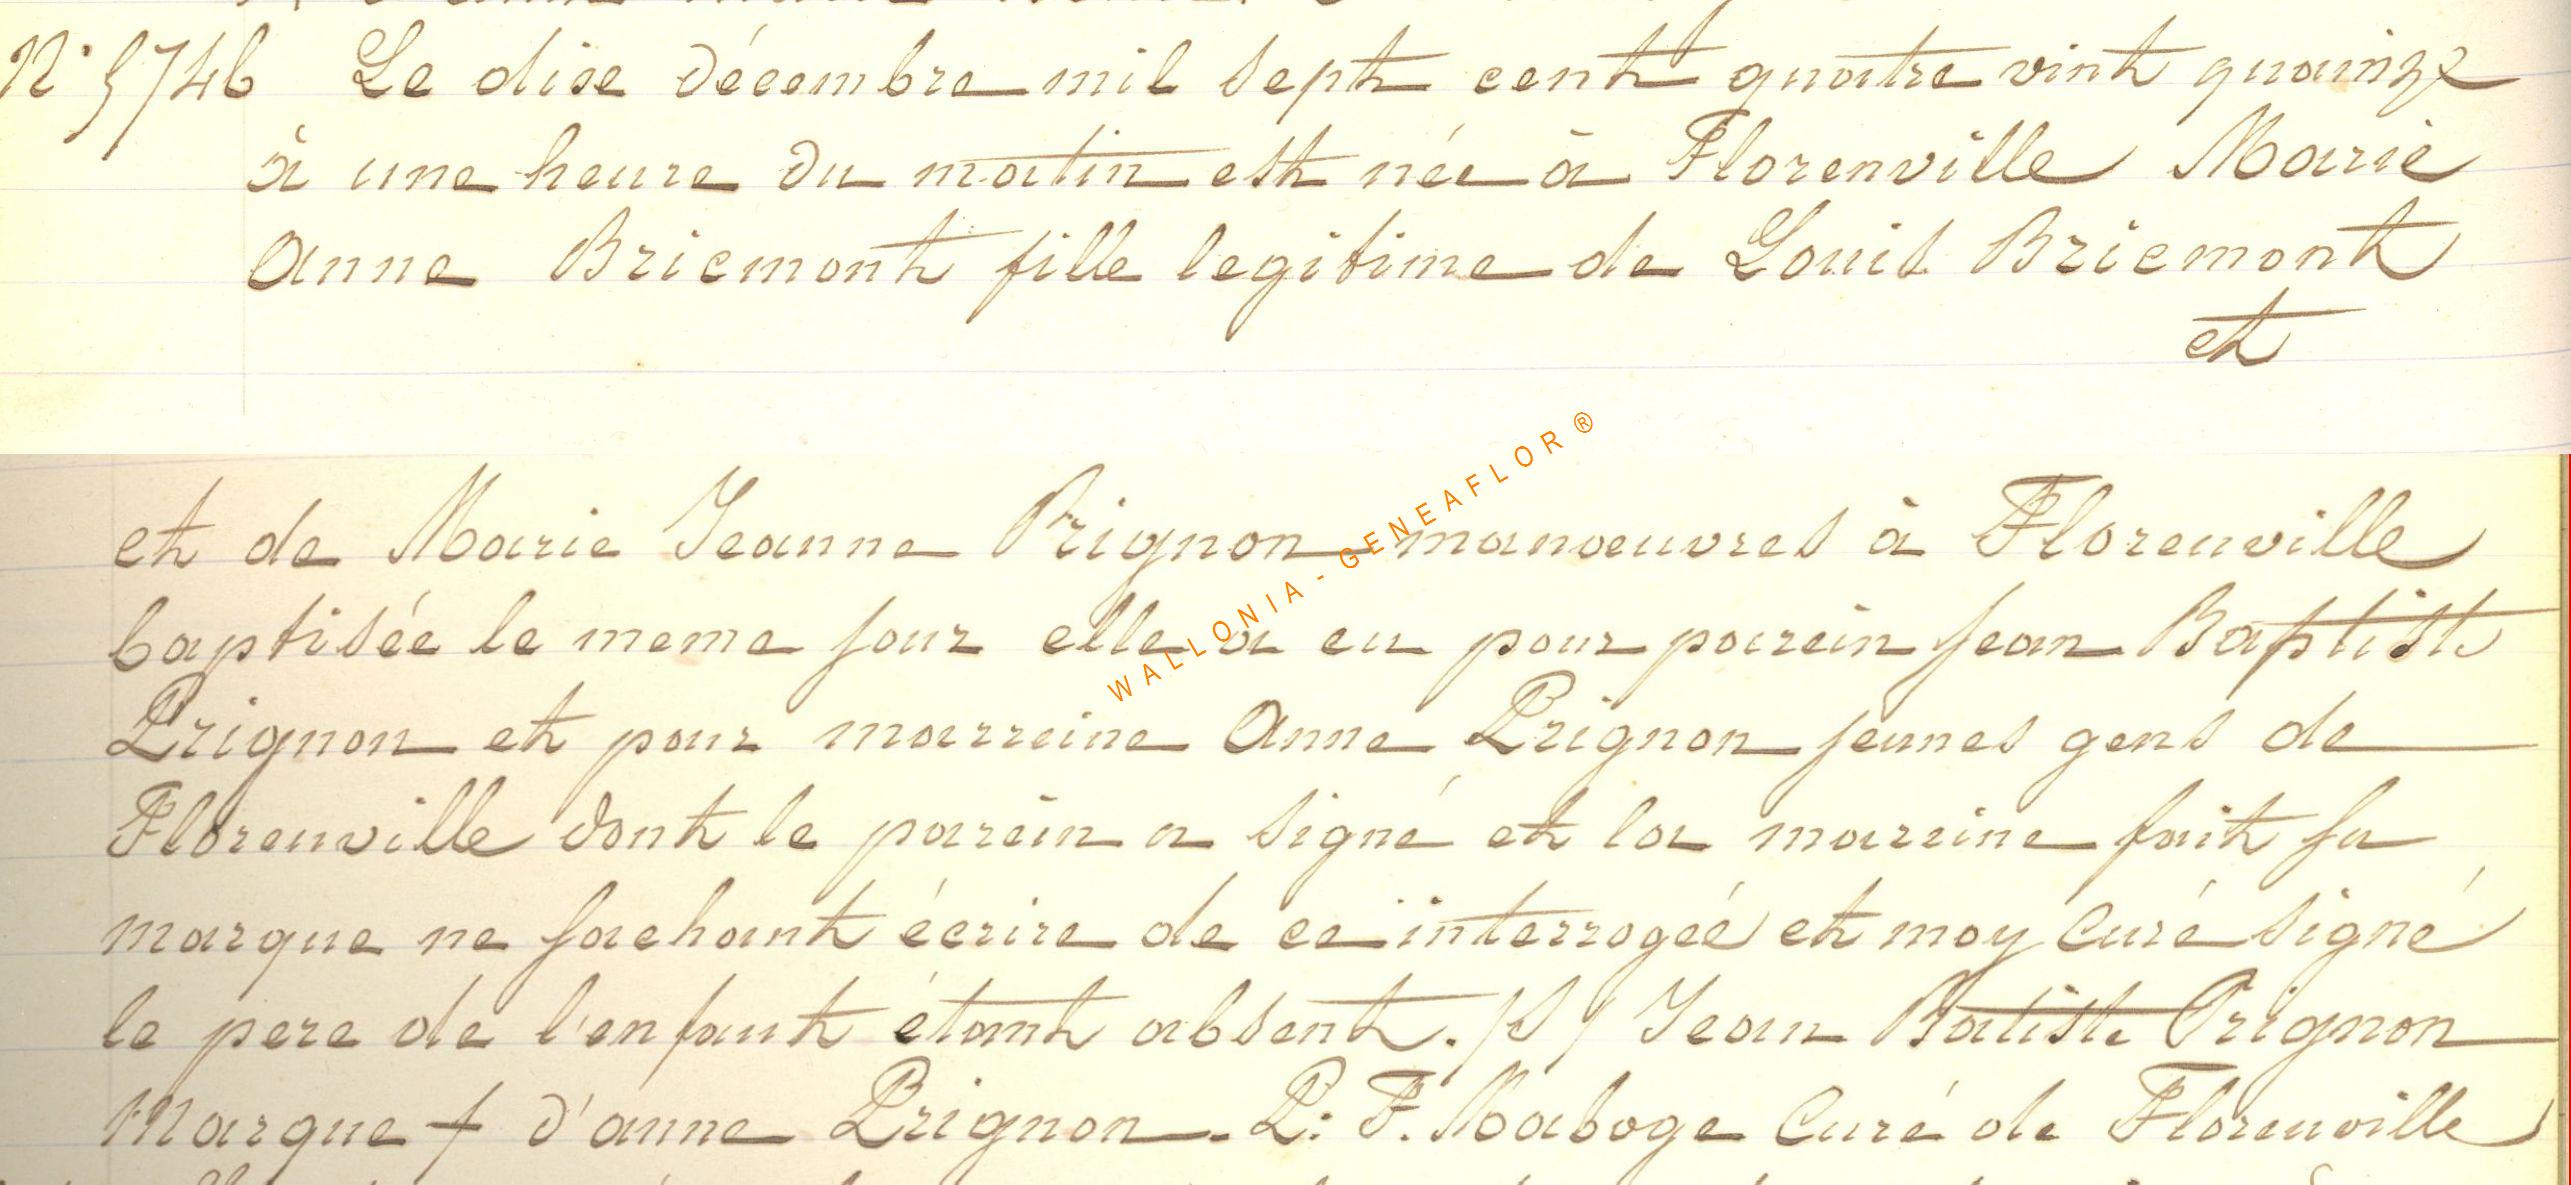 N° 5746 Le dise décembre mil sept cent quatre vint quainze
à une heure du matin est née à Florenville Marie
Anne Briemont fille legitime de Louis Briemont
et
WALLONIA - GENEAFLOR ®
et de Marie Jeanne Prignon manoeuvres à Florenville
baptisée le meme jour elle a eu pour parein Jean Baptiste
Prignon et pour marreine Anne Prignon jeunes gens de
Florenville dont le parein a signé et la marrine fait sa
marque ne sachant écrire de ce interrogeé et moy Curé signé
le pere de l'enfant étant absent. /S/ Jean Batiste Prignon
Marque + d'anne Prignon. P: F. Maboge Curé de Florenville